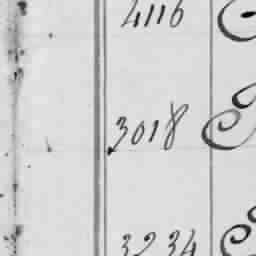 4116
3018
3234